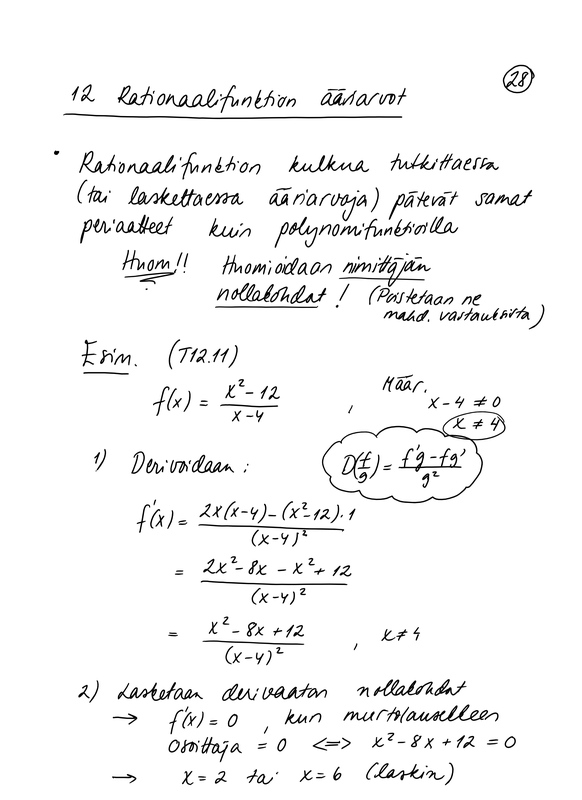 28
12 Rationaalifunktion ääriarvot
• Rationaalifunktion kulkua tutkittaessa
(tai laskettaessa ääriarvoja) pätevät samat
periaatteet kuin polynomifunktioilla
Huom!! Huomioidaan nimittäjän
nollakohdat! (Poistetaan ne
mahd. vastauksista)
Esim. (T12.11)
f(x) = (x² - 12)/(x - 4) , Määr.
x - 4 ≠ 0
x ≠ 4
1) Derivoidaan:
D(f/g) = (f'g - fg')/g²
f'(x) = (2x(x-4) - (x²-12)·1)/(x-4)²
= (2x² - 8x - x² + 12)/(x-4)²
= (x² - 8x + 12)/(x-4)² , x ≠ 4
2) Lasketaan derivaatan nollakohdat
→ f'(x) = 0 , kun murtolausekkeen
osoittaja = 0 <=> x² - 8x + 12 = 0
→ x = 2 tai x = 6 (laskin)